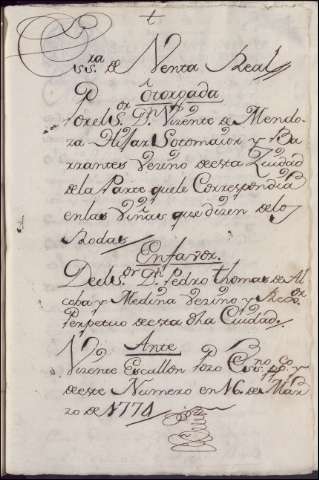 ss.ra de Venta Real
Otorgada
Por el S.or Dn. Vizente de Mendo-
za Hijar Sotomaior y Ba
rrantes Vezino de esta Ziudad
de la Parte que le Correspondia
en las Viñas que dizen de lo
Rodas
En favor
De el S.or Dn. Pedro thomas de Al
coba y Medina Vezino y Rex.or
Perpetuo de esta dha Ciudad.
Ante
Vizente Escallon Pozo Es.no pp.co y
de este Numero en 16 de Mar
zo de 1771